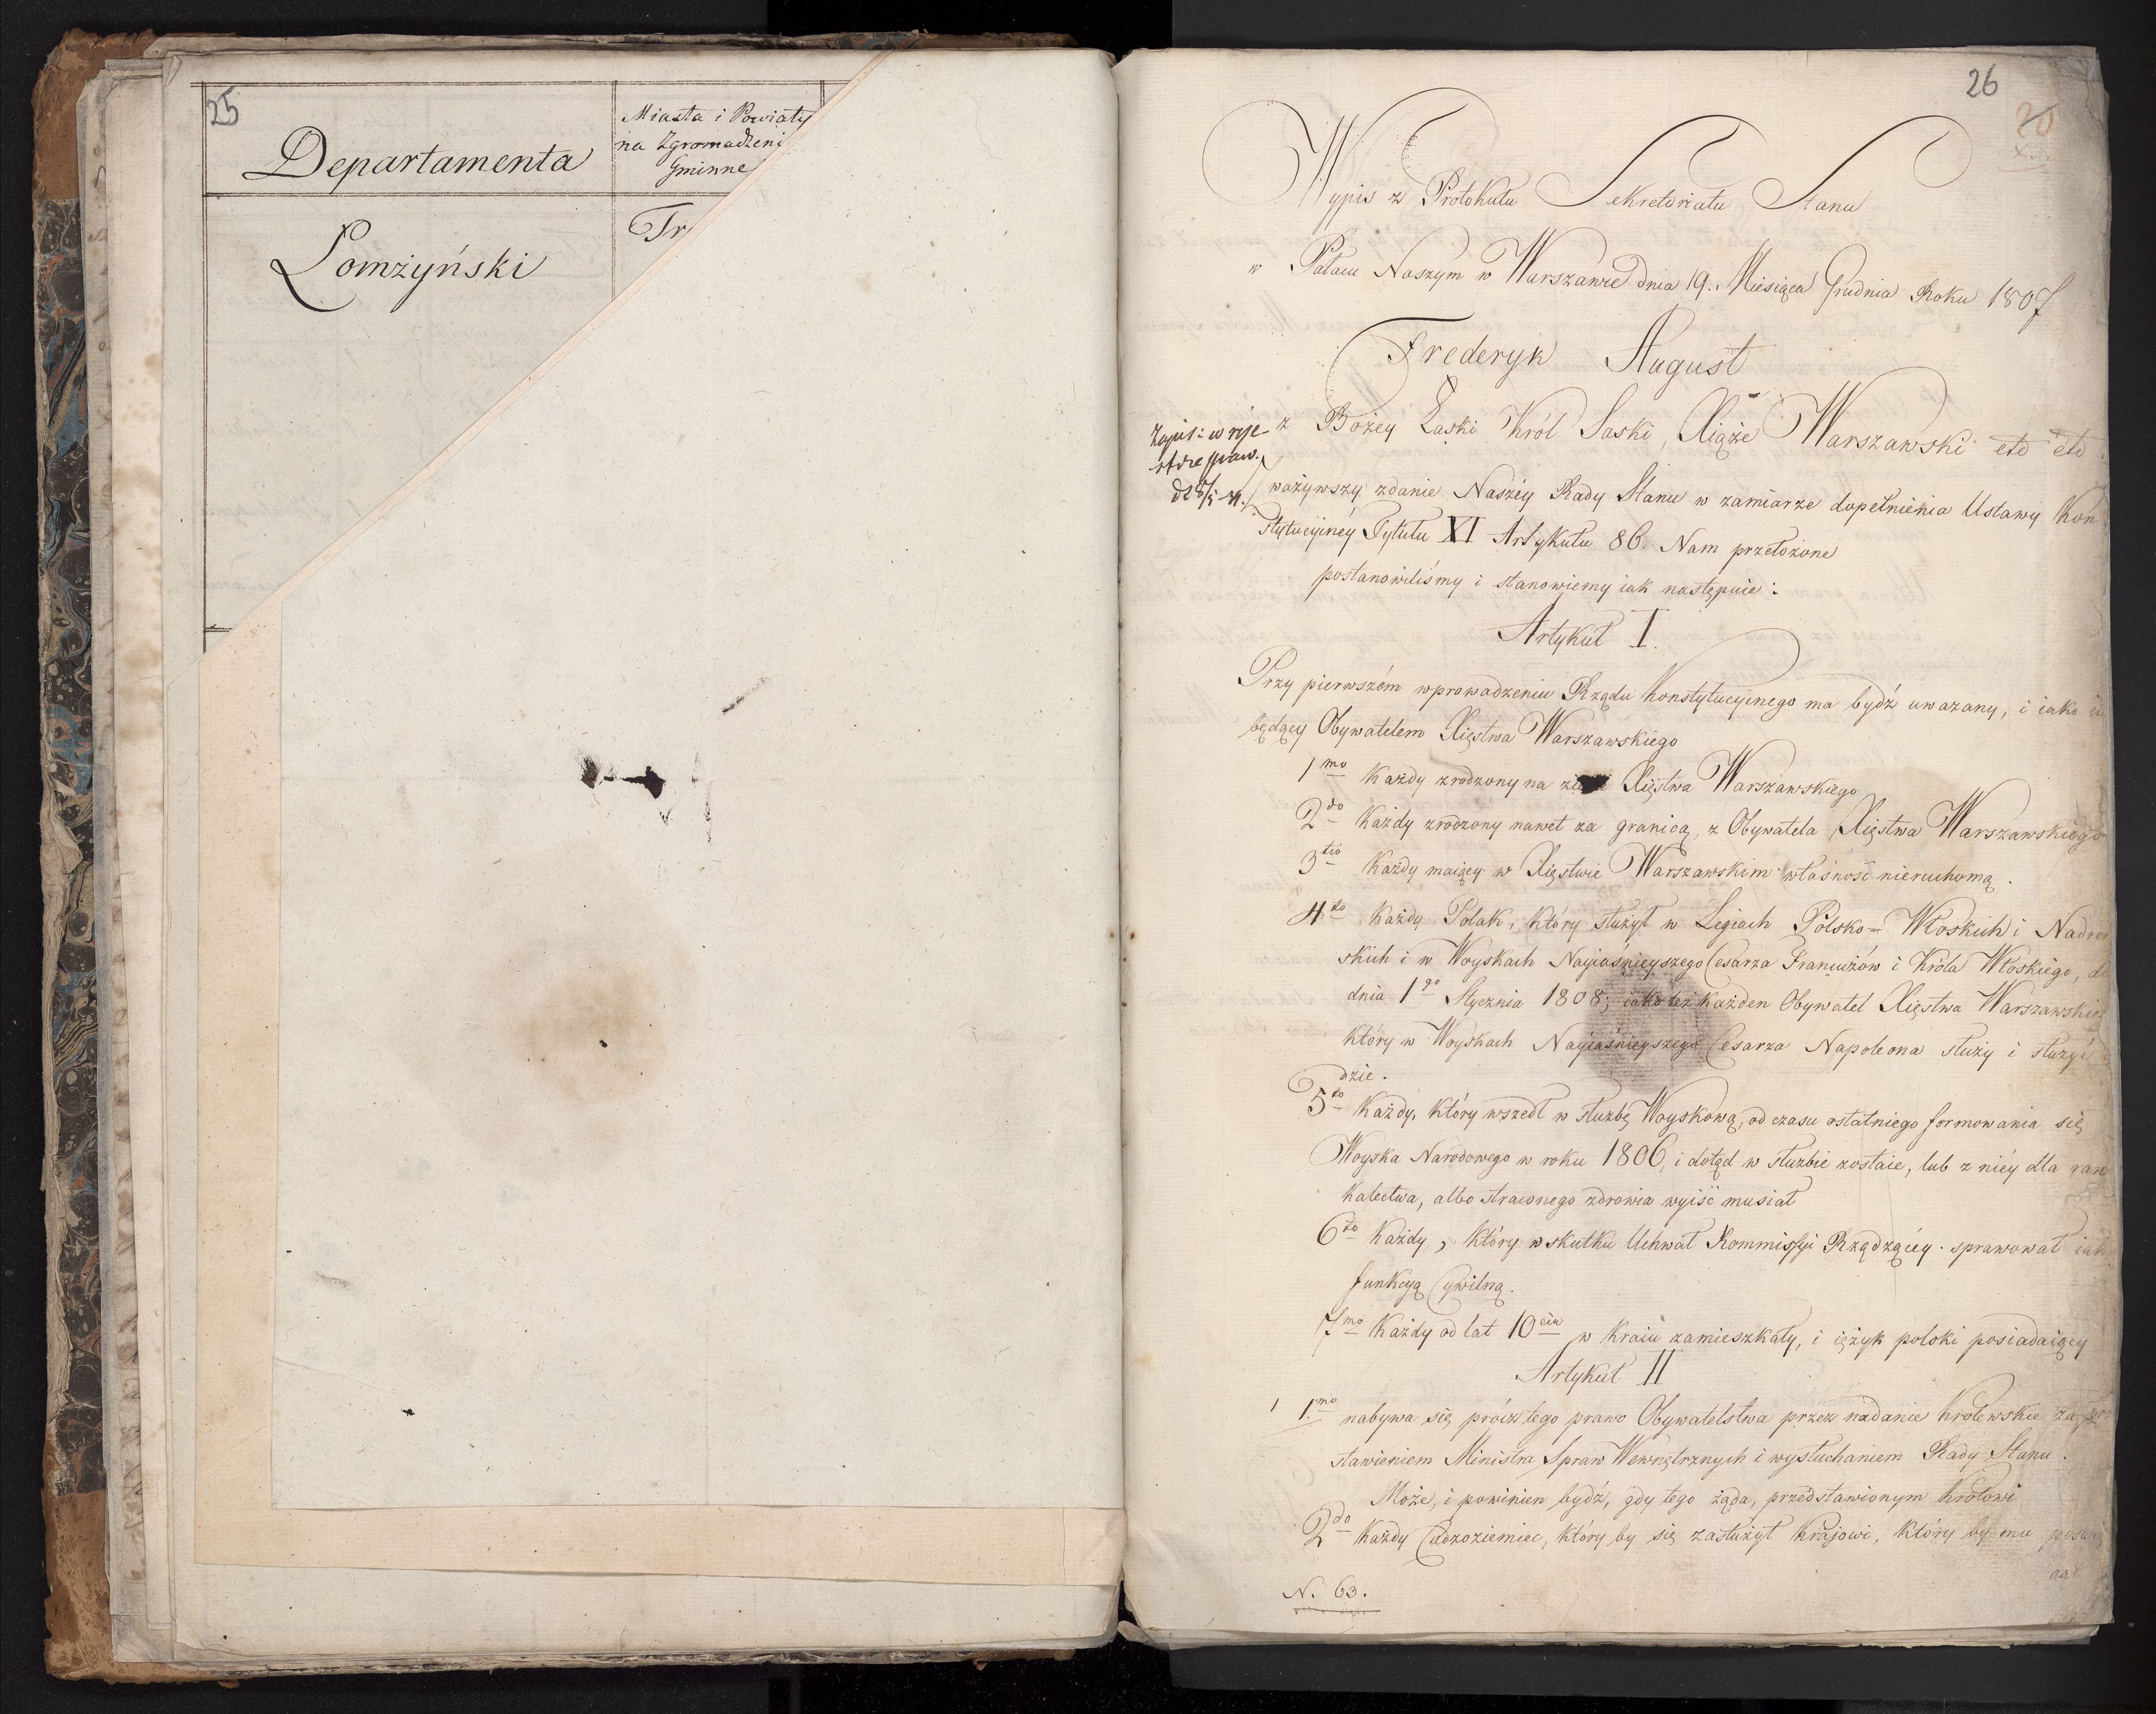 25
Departamenta
Miasta i Powiaty
na Zgromadzeni
Gminne
Łomżyński
Tr
26
20
Wypis z Protokułu Sekretariatu Stanu
w Pałacu Naszym w Warszawie dnia 19. Miesiąca Grudnia Roku 1807
Frederyk August
z Bożey Łaski Król Saski, Xiąże Warszawski etc etc
ważywszy zdanie Naszéy Rady Stanu w zamiarze dopełnienia Ustawy Kon
stytucyinéy Tytułu XI Artykułu 86. Nam przełożone
postanowiliśmy i stanowiemy iak następuie:
Artykuł I.
Przy pierwszém wprowadzeniu Rządu Konstytucyinego ma bydź uważany, i iako
będący Obywatelem Xięstwa Warszawskiego
1mo Każdy zrodzony na Xięstwa Warszawskiego
2do Każdy zrodzony nawet za granicą, z Obywatela Xięstwa Warszawskiego
3tio Każdy maiący w Xięstwie Warszawskim własność nieruchomą.
4to Każdy Polak, który służył w Legiach Polsko-Włoskich i Nadreń
skich i w Woyskach Nayiaśnieyszego Cesarza Francuzów i Króla Włoskiego,
dnia 1go Stycznia 1808; iako też każden Obywatel Xięstwa Warszawskie
który w Woyskach Nayiaśnieyszego Cesarza Napoleona służy i służyć
dzie.
5to Każdy, który wszedł w służbę Woyskową, od czasu ostatniego formowania się
Woyska Narodowego w roku 1806, i dotąd w służbie zostaie, lub z niéy dla ran
kalectwa, albo straconego zdrowia wyiść musiał
6to Każdy, który w skutku Uchwał Kommissyi Rządzącéy sprawował iak
funkcyą Cywilną.
7mo Każdy od lat 10ciu w Kraiu zamieszkały, i ięzyk polski posiadaiący
Artykuł II
1.mo nabywa się prócz tego prawo Obywatelstwa przez nadanie Królewskie za
stawieniem Ministra Spraw Wewnętrznych i wysłuchaniem Rady Stanu.
Może, i powinien bydź, gdy tego żąda, przedstawionym Królowi
2do Każdy Cudzoziemiec, który by się zasłużył Krajowi, który by mu
N. 63.